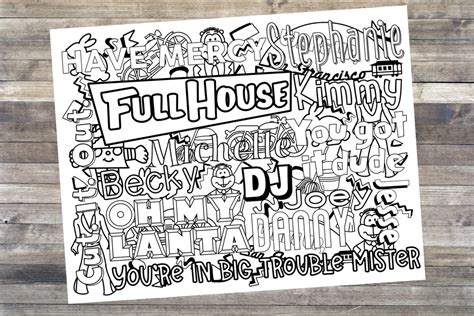 HAVE MERCY
Stephanie
San Francisco
FULL HOUSE
Kimmy
Cut. It. Out.
Michelle
You got
it dude
Becky
DJ
Joey
Jesse
OH MY
LANTA
DANNY
YOU'RE IN BIG TROUBLE MISTER